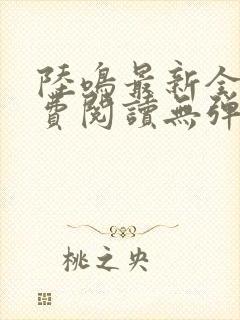 陸鳴最新全
費閱讀無彈
桃之央